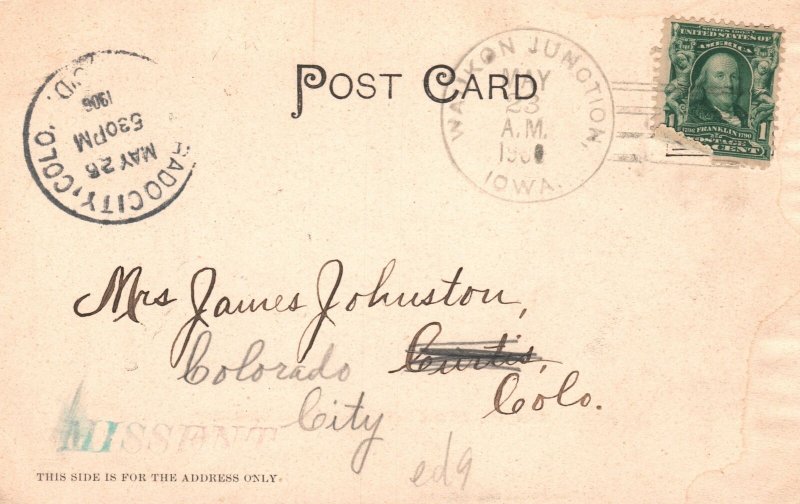 POST CARD
WAUKON JUNCTION,
MAY
23
A.M.
190
IOWA.
SERIES 1902
UNITED STATES OF
AMERICA
1706 FRANKLIN 1790
1 1
POSTAGE
CENT
ADO CITY, COLO.
MAY 25
530PM
1906
C'D.
Mrs James Johnston,
Colorado Curtis,
City Colo.
MISSENT
THIS SIDE IS FOR THE ADDRESS ONLY.
ed9